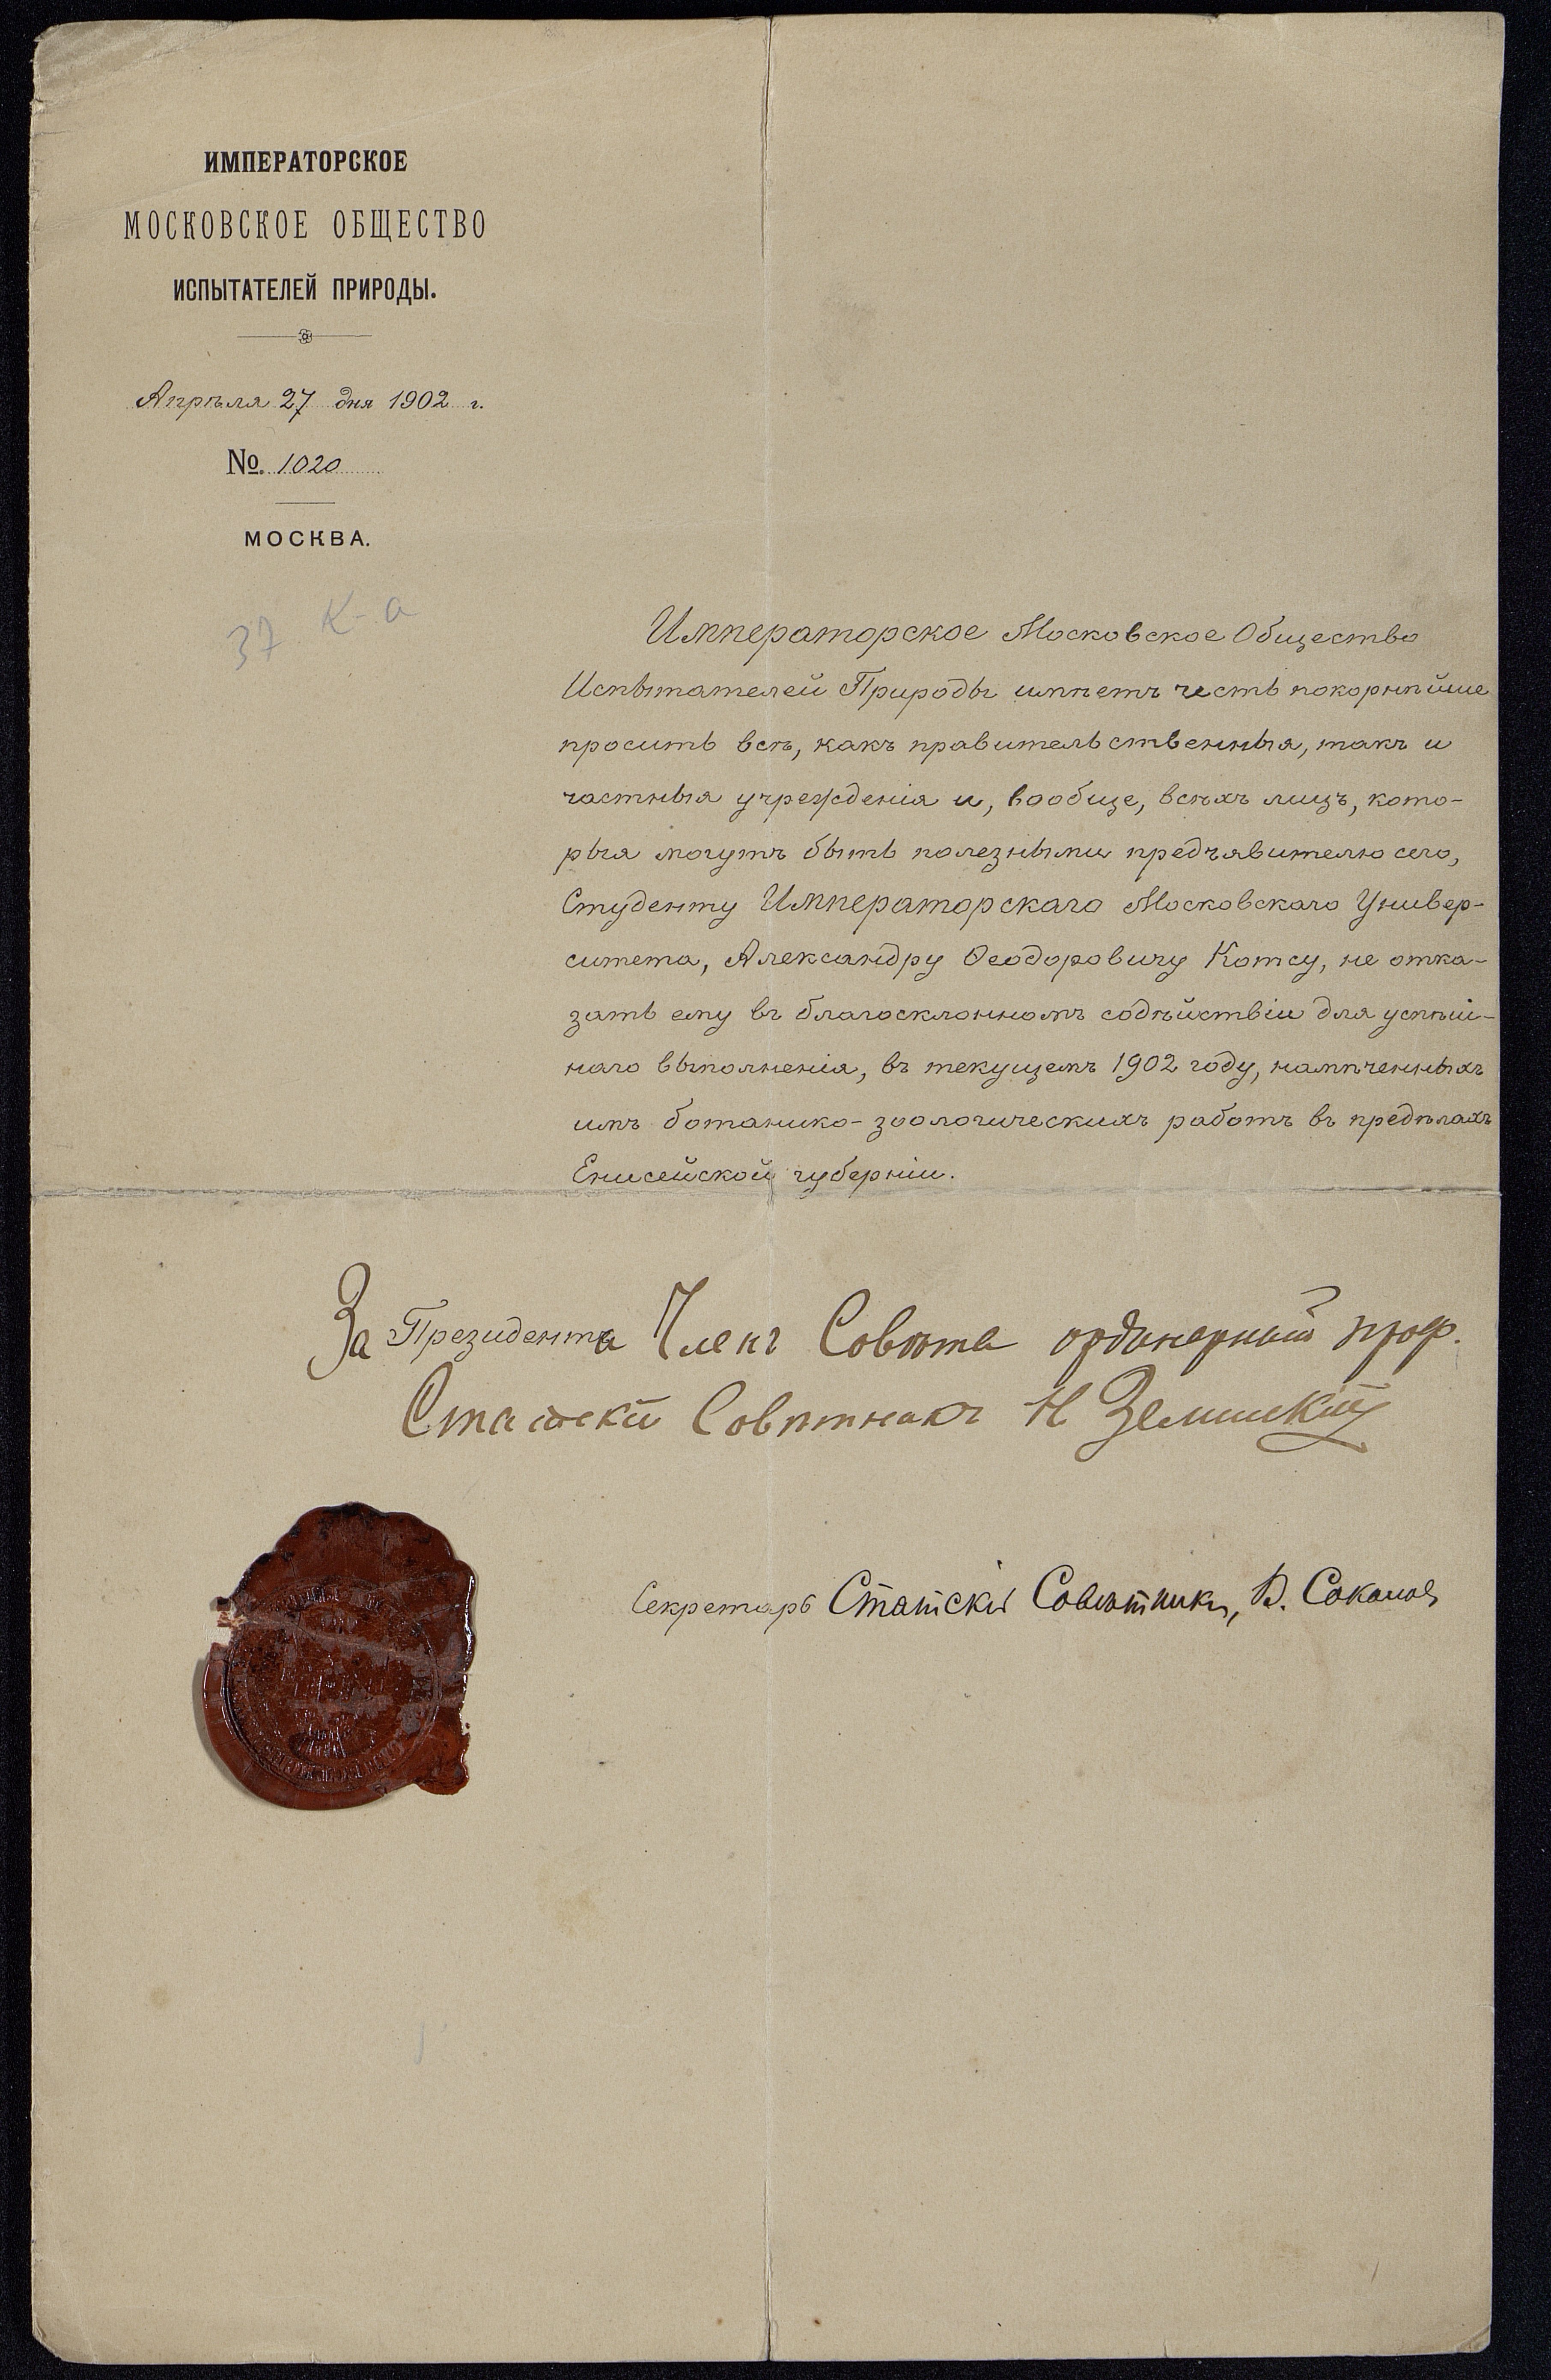 ИМПЕРАТОРСКОЕ
МОСКОВСКОЕ ОБЩЕСТВО
ИСПЫТАТЕЛЕЙ ПРИРОДЫ.
Апрѣля 27 дня 1902 г.
№. 1020
МОСКВА.
37 К-а
Императорское Московское Общество
Испытателей Природы имѣетъ честь покорнѣйше
просить всѣ, какъ правительственныя, такъ и
частныя учрежденія и, вообще, всѣхъ лицъ, кото-
рыя могутъ быть полезными предъявителю сего,
Студенту Императорскаго Московскаго Универ-
ситета, Александру Ѳеодоровичу Котсу, не отка-
зать ему въ благосклонномъ содѣйствіи для успѣш-
наго выполненія, въ текущемъ 1902 году, намѣченныхъ
имъ ботанико-зоологическихъ работъ въ предѣлахъ
Енисейской губерніи.
За Президента Членъ Совѣта ординарный проф.
Статскій Совѣтникъ Н Зелинскій
Секретарь Статскій Совѣтникъ, В. Соколовъ